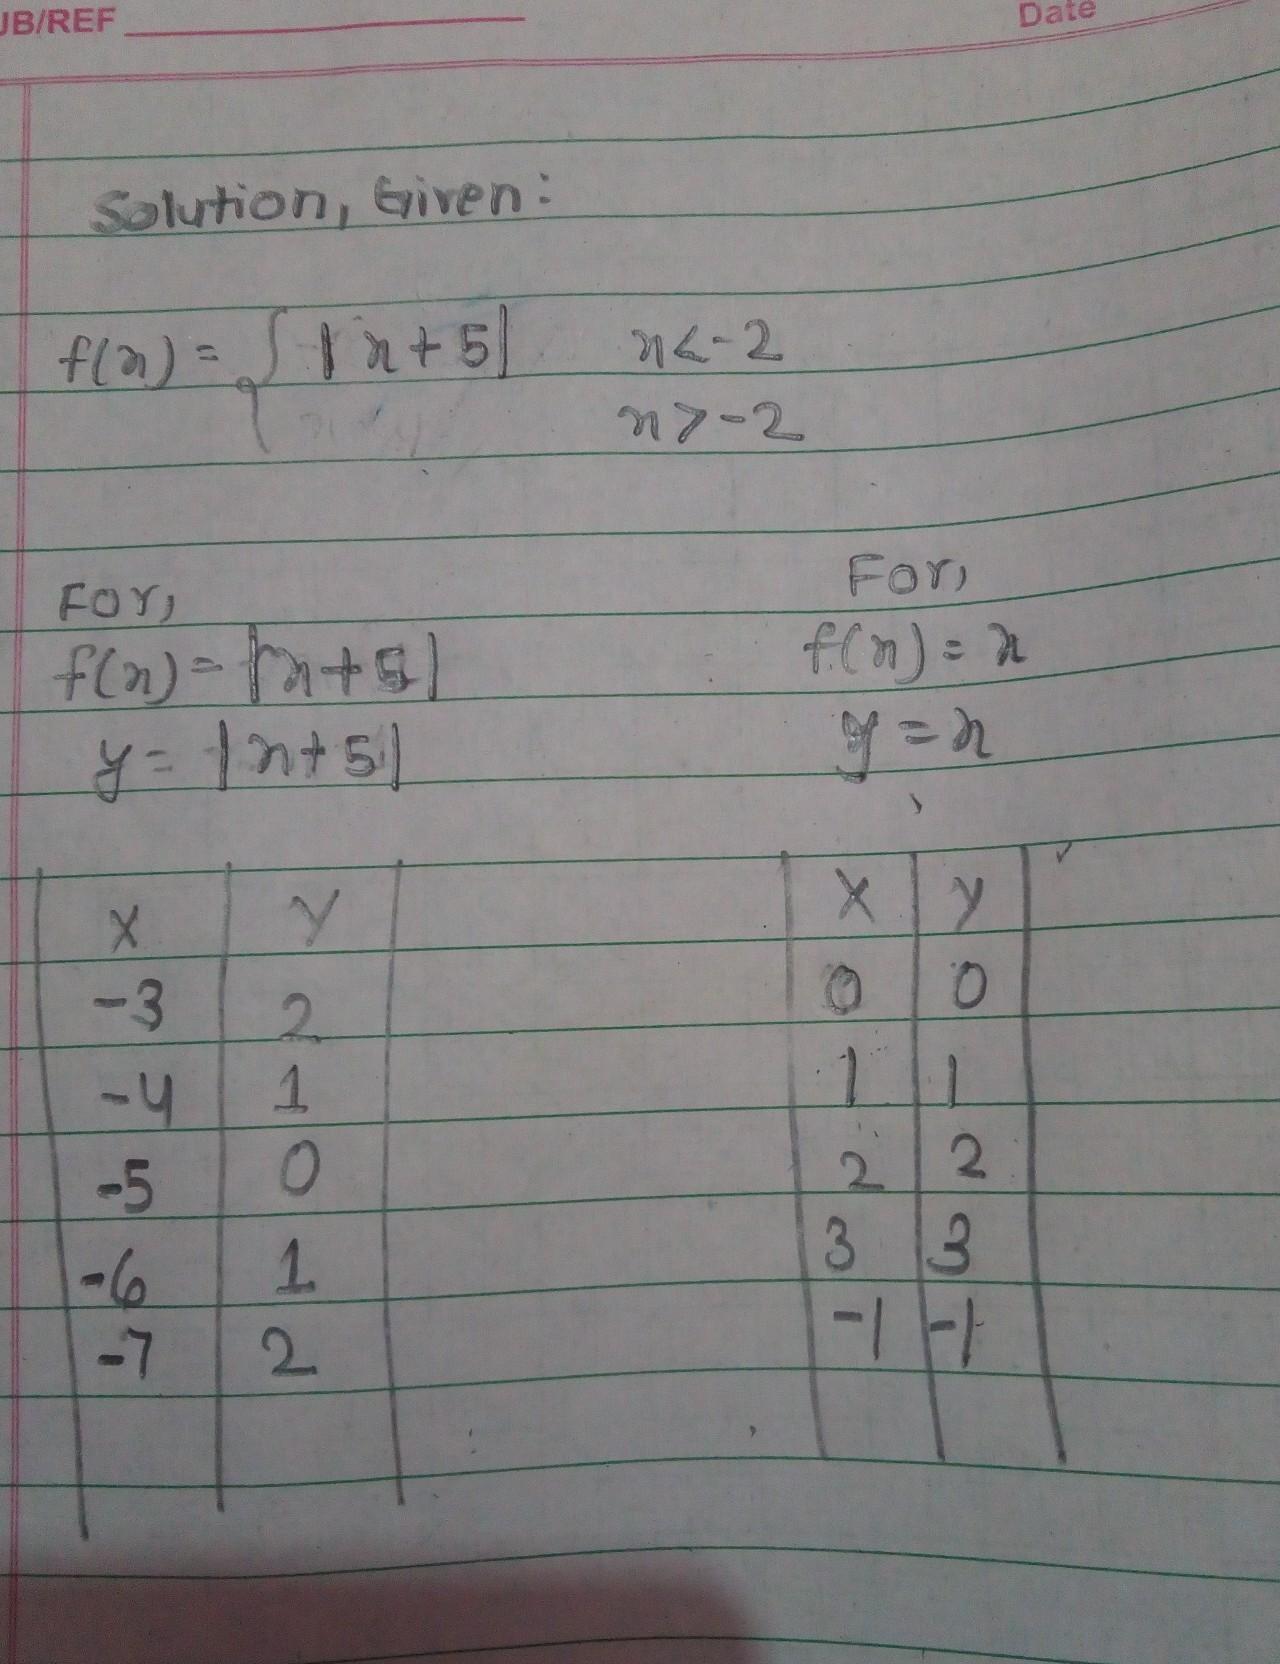 JB/REF
Date
Solution, Given:
f(x) = { |x+5| x<-2
x>-2
For, For,
f(x) = |x+5| f(x) = x
y = |x+5| y = x
X Y X Y
-3 2 0 0
-4 1 1 1
-5 0 2 2
-6 1 3 3
-7 2 -1 -1